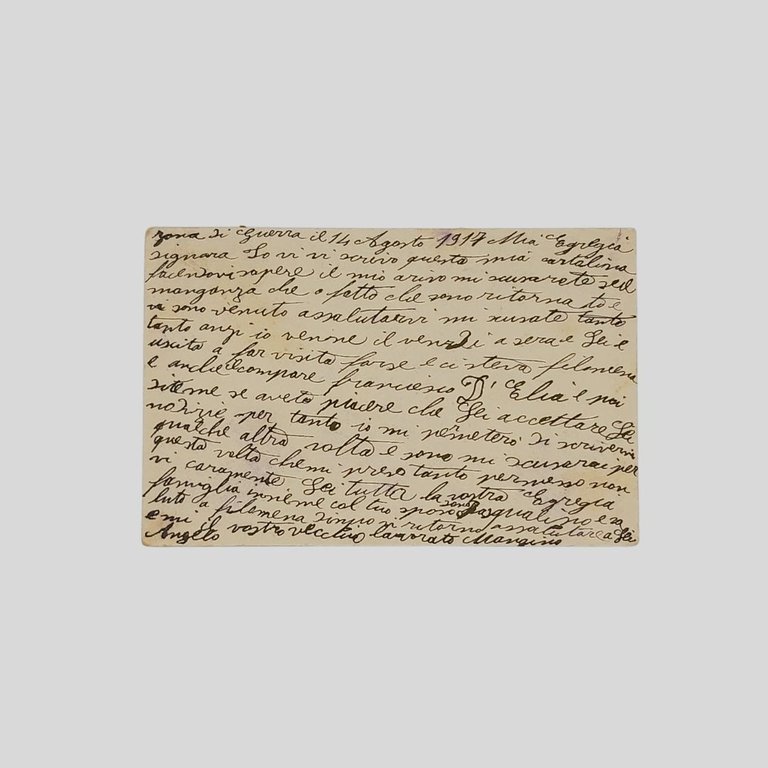 zona di Guerra il 14 Agosto 1917 Mia Egregia
signiara Io vi vi scrivo questa mia cartolina
facendovi sapere il mio arivo mi scusarate sed
manganza che o fatto che sono ritorna to e
vi sono venuto assalutarvi mi scusate tanto
tanto anzi io venne il venzdi a sera e Lei e
uscita a far visita forse e ci steva filomena
e anche il compare francesco D' Elia e poi
siteme se aveto piacere che Lei accettare Lei
nodizie per tanto io mi permeterò di scrivervi
qualche altra volta e sono mi scusarai per
questa volta che mi preso tanto permesso non
vi caramente Lei tutta la vostra Egregia
famiglia insieme col tuo sposo Pasqualino e sa
luto a filomena di ritorno assalutare a Lei
e mi il vostro vecchio lavorato Mangino
Angelo